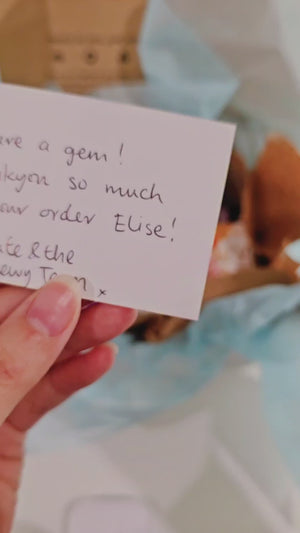 are a gem!
nkyou so much
our order Elise!
ate & the
ewy Team x